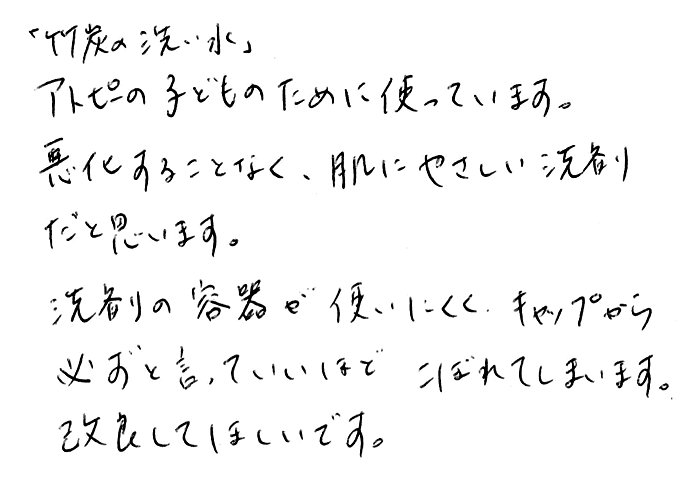 「竹炭の洗い水」
アトピーの子どものために使っています。
悪化することなく、肌にやさしい洗剤
だと思います。
洗剤の容器が使いにくく、キャップから
必ずと言っていいほどこぼれてしまいます。
改良してほしいです。